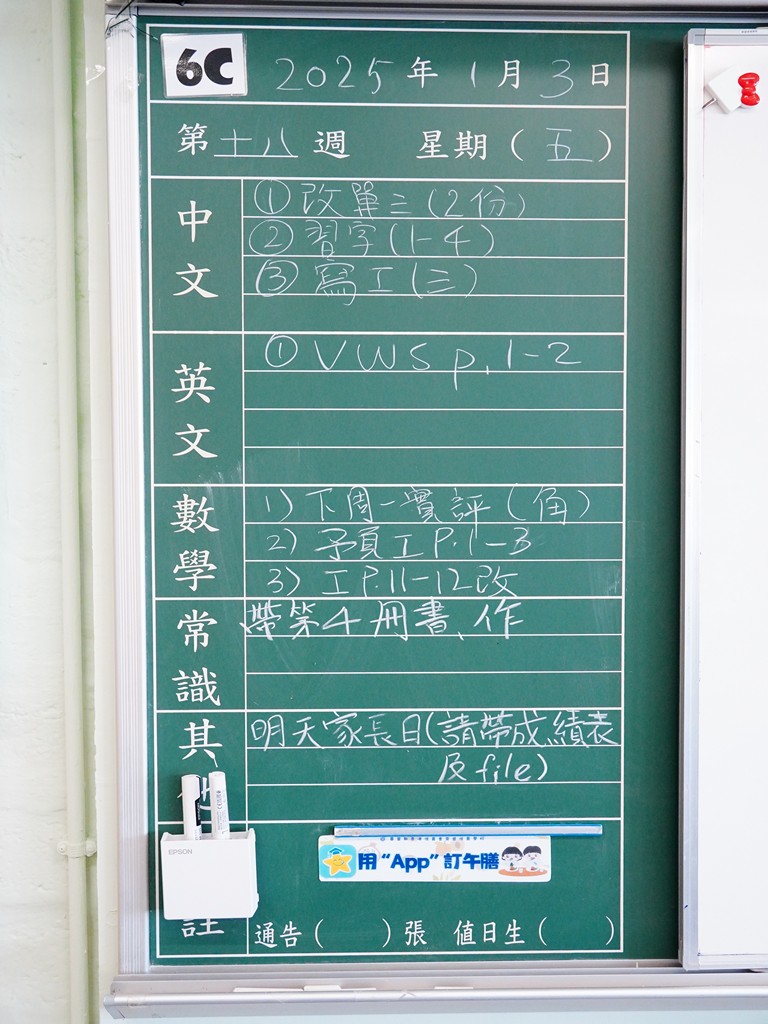 6C 2025年1月3日
第十八週 星期(五)
中文
①改單三(2份)
②習字(1-4)
③寫工(三)
英文
①VWS p.1-2
數學
1)下周一實評(角)
2)予員工P.1-3
3)工P.11-12改
常識
帶第4冊書、作
其
明天家長日(請帶成績表
及file)
EPSON
用“App”訂午膳
註
通告( )張 值日生( )